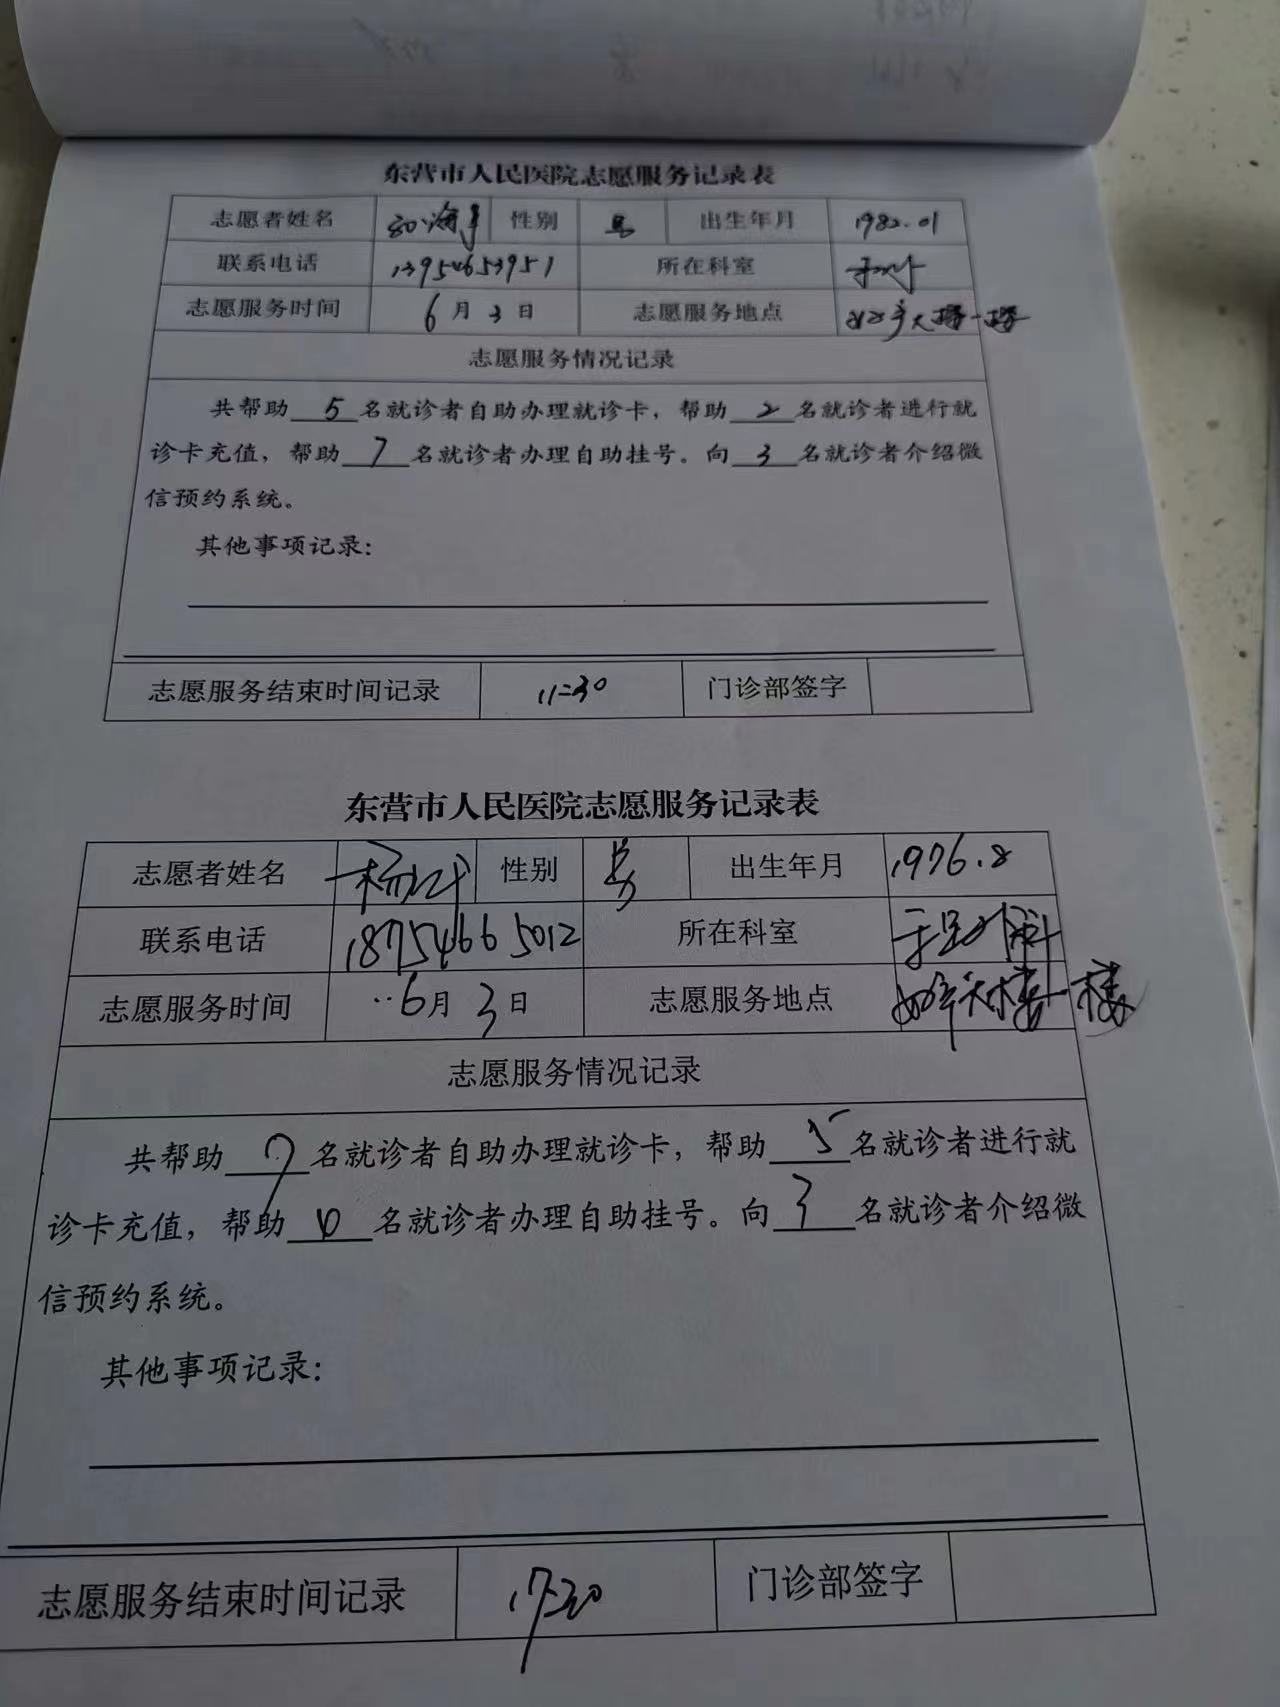 东营市人民医院志愿服务记录表
志愿者姓名 性别 男 出生年月 1982.01
联系电话 13954653951 所在科室
志愿服务时间 6月3日 志愿服务地点 大楼一楼
志愿服务情况记录
共帮助5名就诊者自助办理就诊卡，帮助2名就诊者进行就
诊卡充值，帮助7名就诊者办理自助挂号。向3名就诊者介绍微
信预约系统。
其他事项记录：
志愿服务结束时间记录 11:30 门诊部签字
东营市人民医院志愿服务记录表
志愿者姓名 性别 男 出生年月 1976.8
联系电话 18754665012 所在科室 手足外科
志愿服务时间 6月3日 志愿服务地点 楼一楼
志愿服务情况记录
共帮助 名就诊者自助办理就诊卡，帮助5名就诊者进行就
诊卡充值，帮助 名就诊者办理自助挂号。向3名就诊者介绍微
信预约系统。
其他事项记录：
志愿服务结束时间记录 17:30 门诊部签字